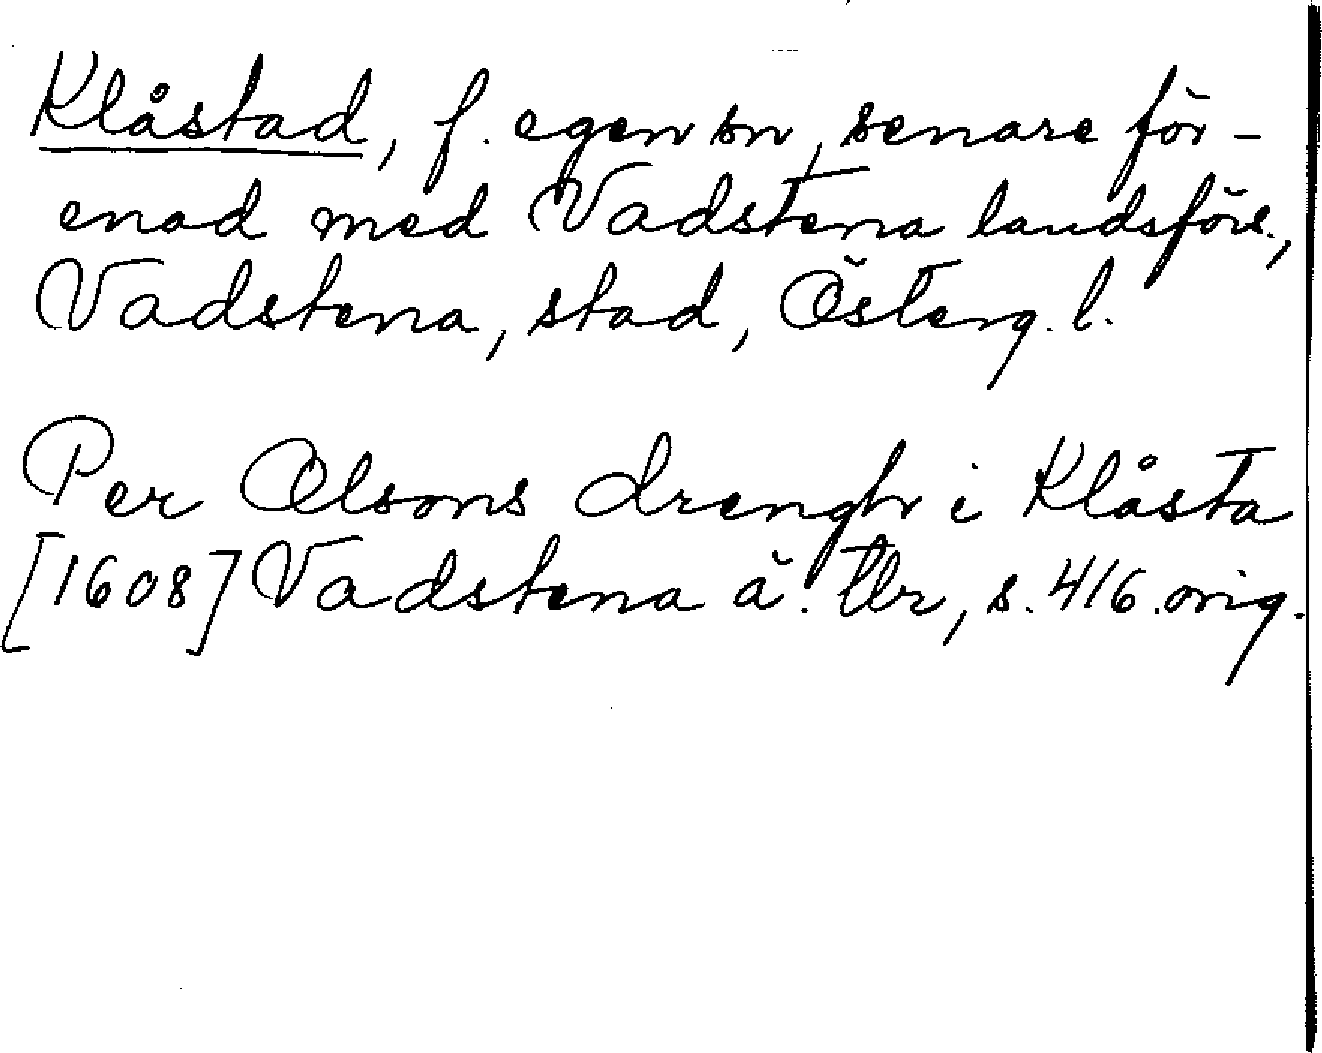 Klåstad, f. egen sn, senare för-
enad med Vadstena landsförs.,
Vadstena, stad, Österg. l.
Per Olsons drengh i Klåsta
[1608] Vadstena ä. Tbr, s. 416. orig.